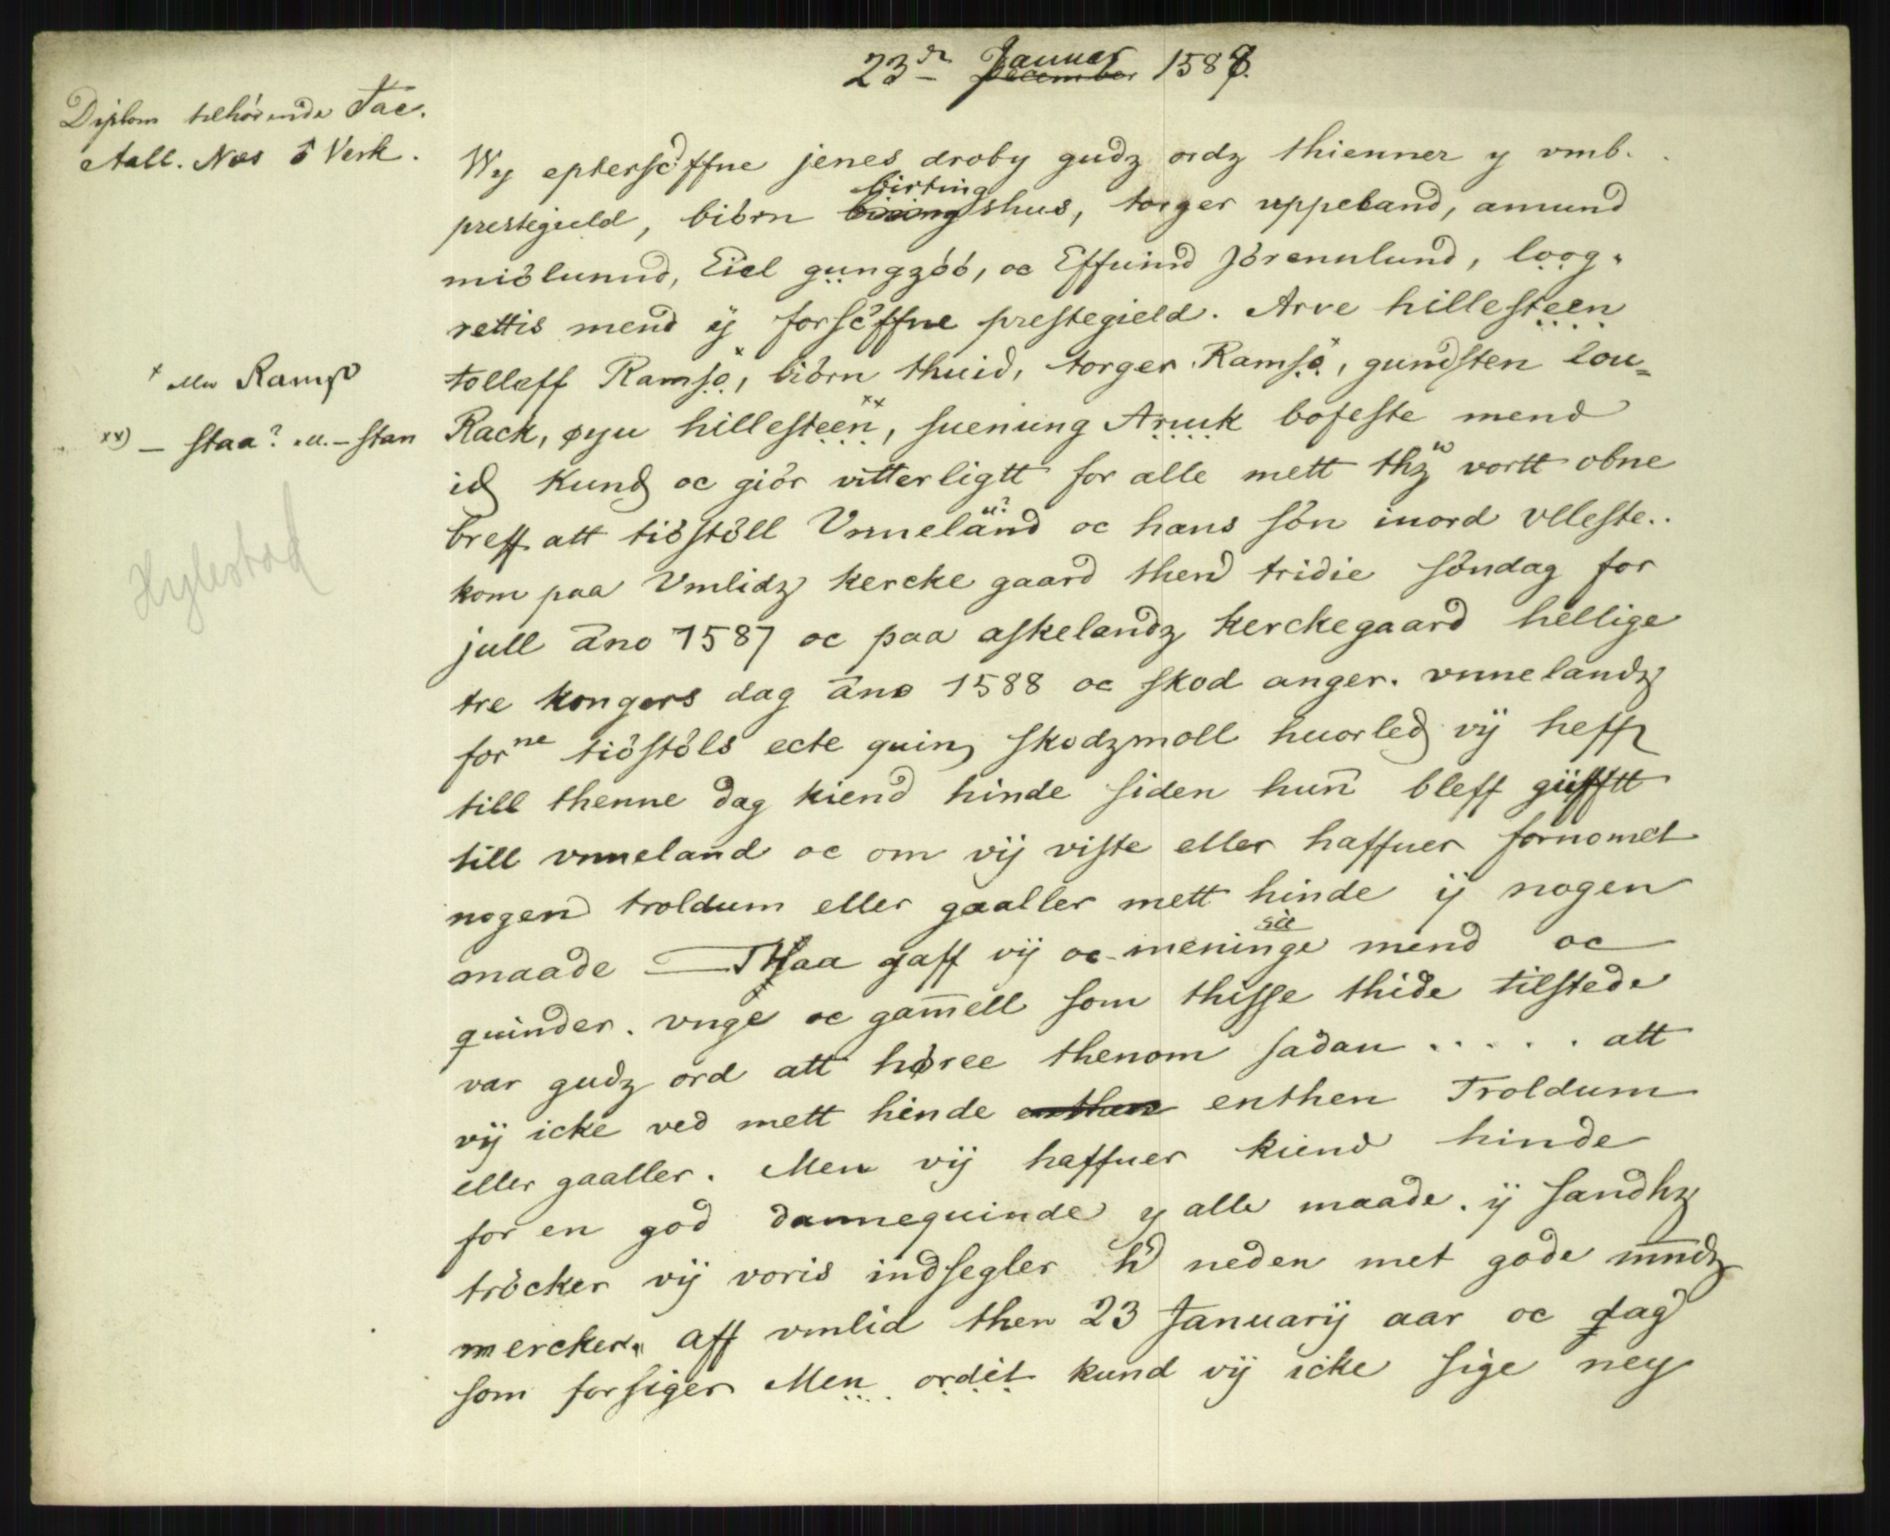 23de Januar 1588.
Diplom tilhørende Jac.
Aall. Næs ō Verk.
Wy epterscffne jenes droby gudz ordz thienner y vmb.
prestegield, biörn birtingshus, torger uppeland, amund
miölunnd, Eiel gungzöö, oc Effuind Jörennlund, loog.
rettis mend ÿ forscffne prestegield. Arve hillesteen
x eller Ramsø
tolleff Ramsø x, biörn thuid, torger Ramsø x, gundsten lou-
xx) – staa? ell. – stan
Rack, øyu hillesteen xx, suenung Aruuk bofeste mend
id kund oc giör vitterligtt for alle mett thz vortt obne
breff att tiöstöll Vnneland oc hans sön inord vlleste..
Hylestad
kom paa Vmlidz kercke gaard thend tridie söndag for
jull āno 1587 oc paa askelandz kerckegaard hellige
tre kongers dag āno 1588 oc skod anger. vnnelandz
forne tiöstöls ecte quin, skodzmoll huorled vÿ heff
till thenne dag kiend hinde siden hun bleff giifftt
till vnneland oc om vÿ viste eller haffuer fornomet
nogen troldum eller gaaller mett hinde ÿ nogen
maade — Thaa gaff vÿ oc meninge mend oc
quinder. vnge oc gam̄ell som thisse thide tilstede
var gudz ord att høree thenom sadan . . . . . att
vÿ icke ved mett hinde enthen Troldum
eller gaaller. Men vÿ haffuer kiend hinde
for en god dannequinde y alle maade. ÿ sandhz
tröcker vÿ voris indsegler hd neden met gode mndz
mercker. aff vmlid then 23 Januarÿ aar oc dag
som forsiger Men ordit kund vÿ icke sige ney